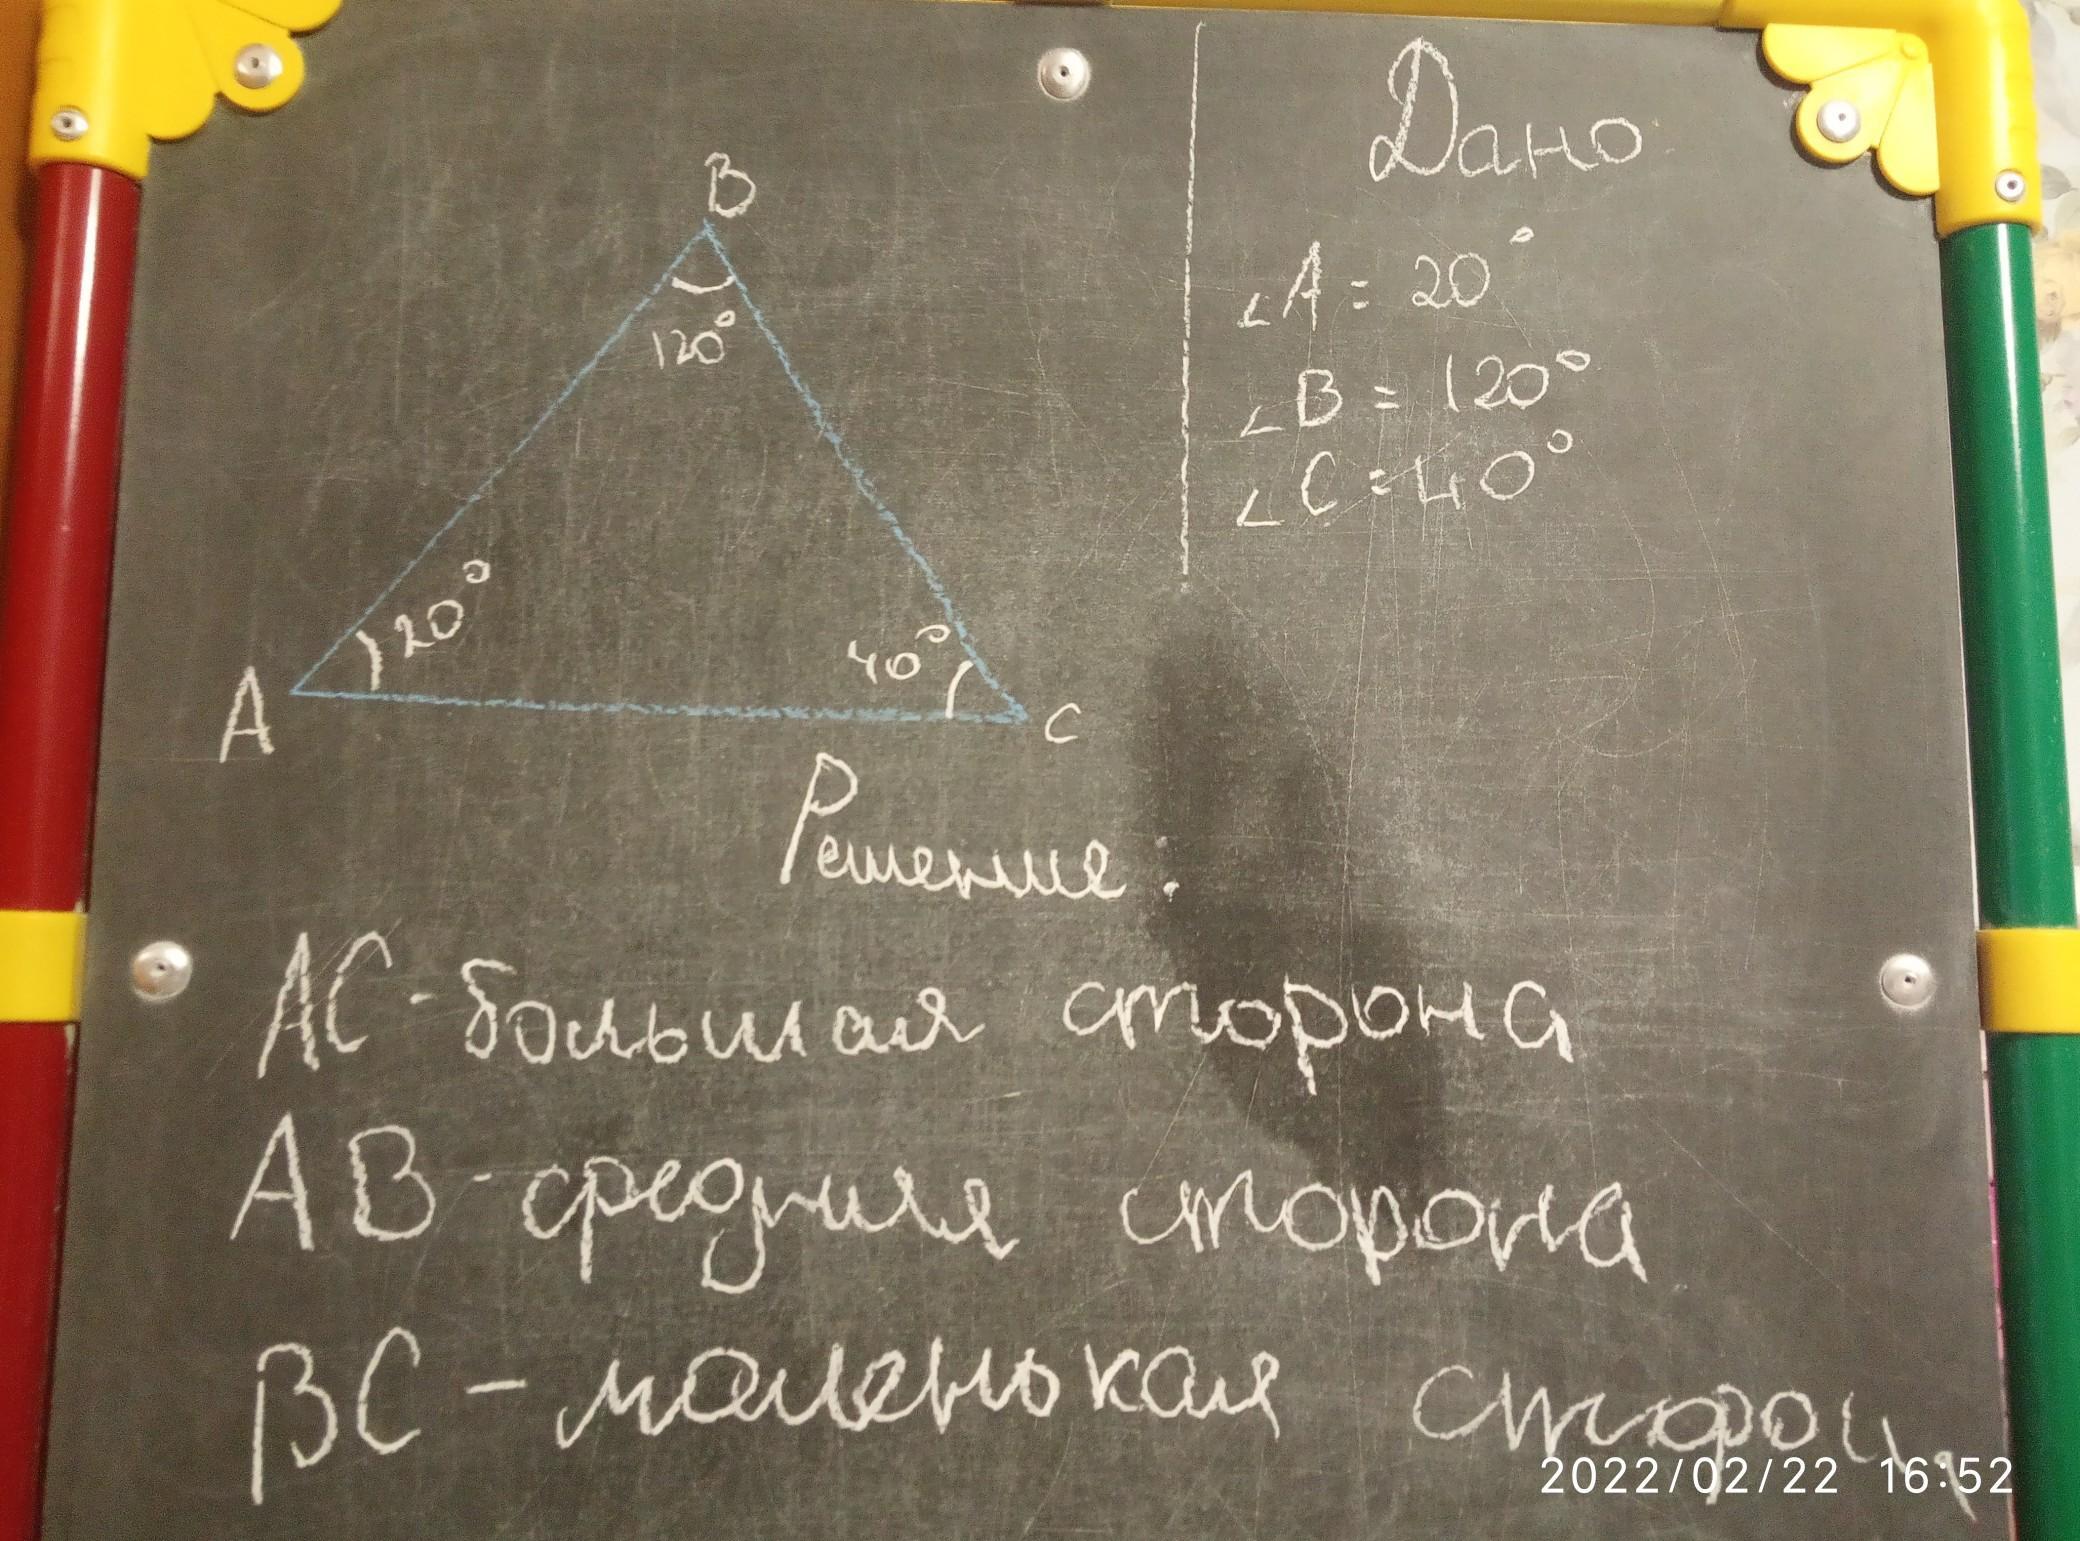 B
120°
20°
40°
A
C
Дано
∠A = 20°
∠B = 120°
∠C = 40°
Решение:
AC - большая сторона
AB - средняя сторона
BC - маленькая
2022/02/22 16:52